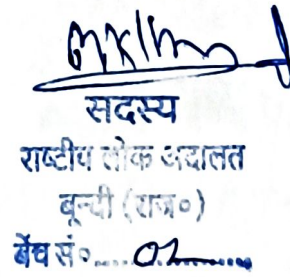 सदस्य
राष्ट्रीय लोक अदालत
बून्दी (राज०)
बेंच सं०....02........